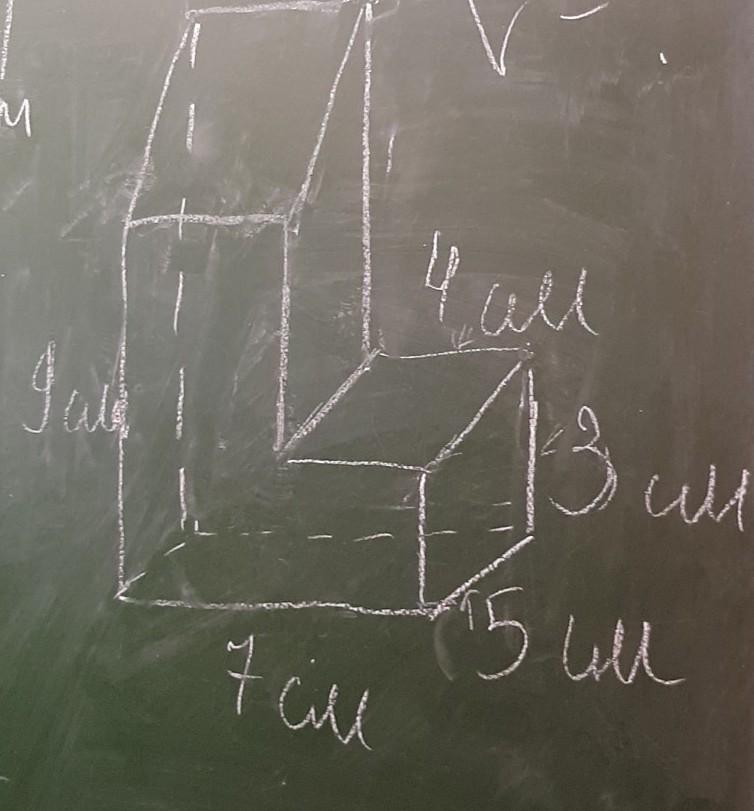 V
4 см
9 см
3 см
5 см
7 см